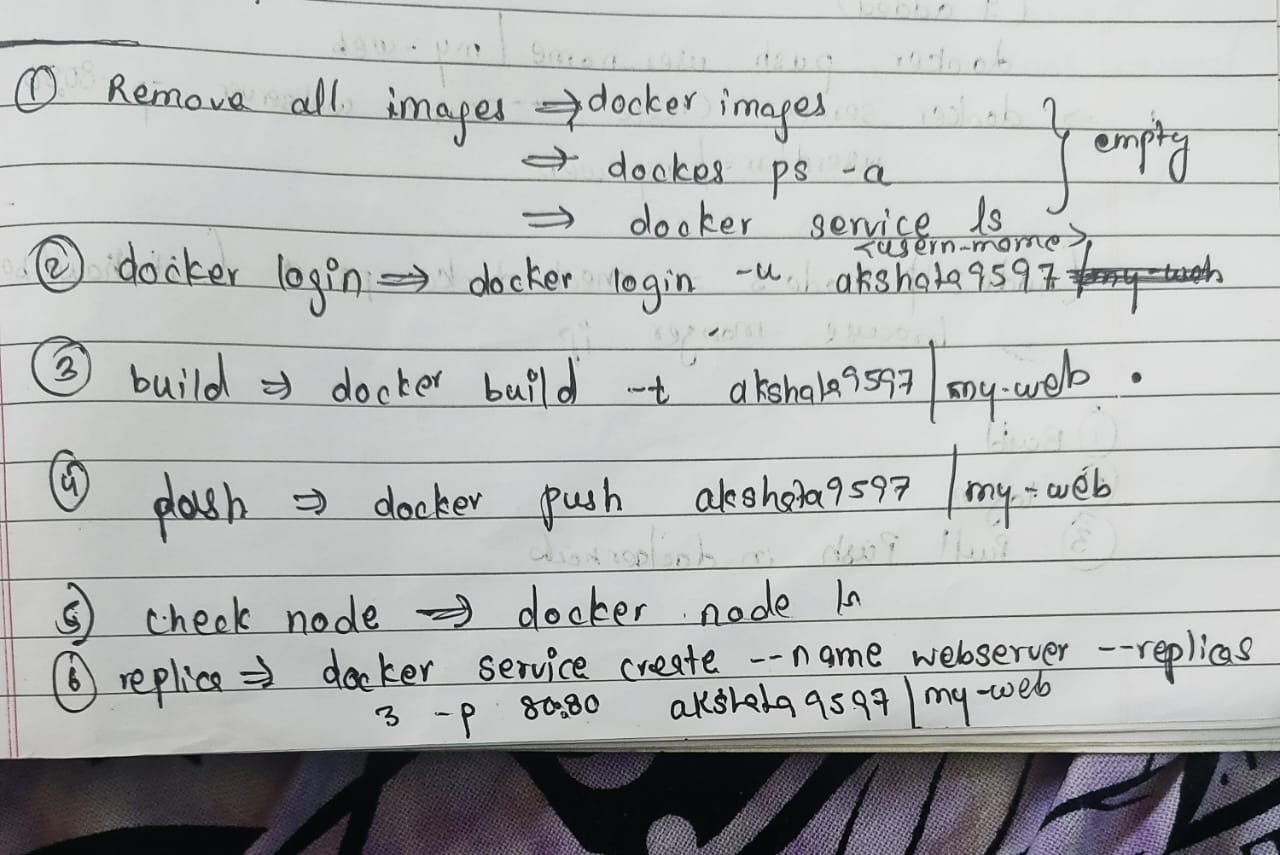 ① Remove all images ⇒ docker images
⇒ docker ps -a } empty
⇒ docker service ls
<usern-mame>
② docker login ⇒ docker login -u akshata9597
③ build ⇒ docker build -t akshata9597/my-web .
④ push ⇒ docker push akshata9597/my-web
⑤ check node ⇒ docker node ls
⑥ replica ⇒ docker service create --name webserver --replicas
3 -p 80:80 akshata9597/my-web